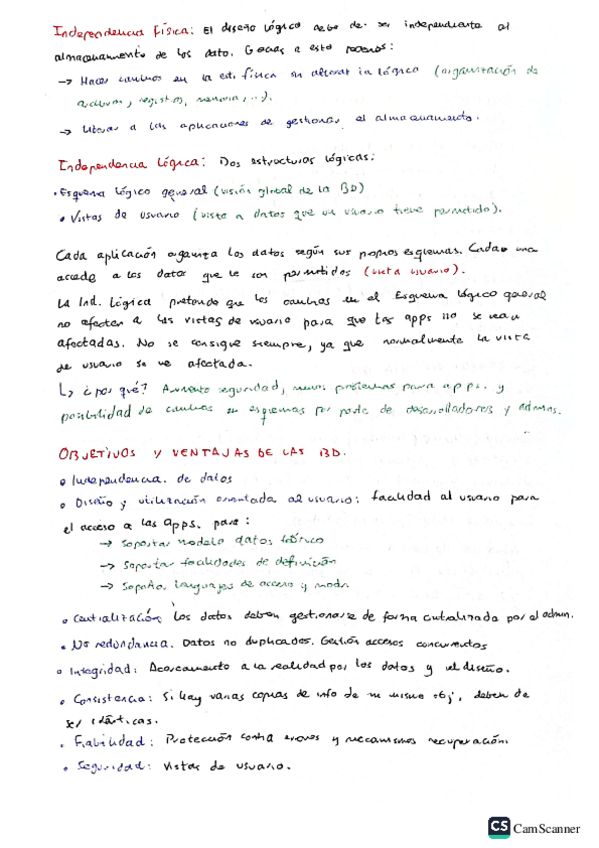 Independencia Física: El diseño lógico debe de ser independiente al
almacenamiento de los dato. Gracias a esto podemos:
→ Hacer cambios en la est. física sin alterar la lógica (organización de
archivos, registros, memoria, ...).
→ Liberar a las aplicaciones de gestionar el almacenamiento.
Independencia Lógica: Dos estructuras lógicas:
• Esquema lógico general (visión global de la BD)
• Vistas de usuario (vista a datos que un usuario tiene permitido).
Cada aplicación organiza los datos según sus propios esquemas. Cada una
accede a los datos que le son permitidos (vista usuario).
La Ind. Lógica pretende que los cambios en el Esquema lógico general
no afecten a las vistas de usuario para que las apps no se vean
afectadas. No se consigue siempre, ya que normalmente la vista
de usuario se ve afectada.
↳ ¿por qué? Aumento seguridad, menos problemas para apps. y
posibilidad de cambios en esquemas por parte de desarrolladores y admins.
OBJETIVOS Y VENTAJAS DE LAS BD.
• Independencia de datos
• Diseño y utilización orientada al usuario: facilidad al usuario para
el acceso a las apps. para:
→ Soportar modelo datos teórico
→ Soportar facilidades de definición
→ Soporta lenguajes de acceso y modi.
• Centralización: los datos deben gestionarse de forma centralizada por el admin.
• No redundancia. Datos no duplicados. Gestión accesos concurrentes
• Integridad: Acercamiento a la realidad por los datos y el diseño.
• Consistencia: Si hay varias copias de info de un mismo obj, deben de
ser idénticas.
• Fiabilidad: Protección contra errores y mecanismos recuperación.
• Seguridad: Vistas de usuario.
CS CamScanner